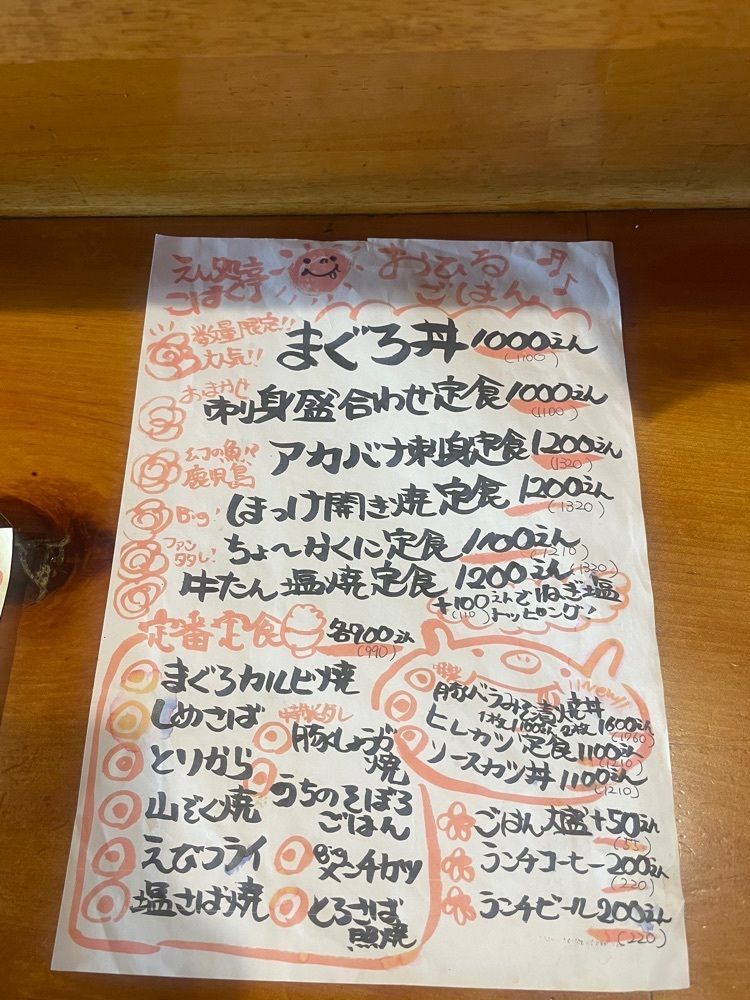 えん処亭
こはく
おひる
ごはん
数量限定!!
人気!!
まぐろ丼 1000えん
(1100)
おまかせ
刺身盛合わせ定食 1000えん
(1100)
幻の魚!!
鹿児島
アカバナ刺身定食 1200えん
(1320)
Big!
ほっけ開き焼定食 1200えん
(1320)
ファン
タタレ!
ちょ〜かくに定食 1100えん
(1210)
牛たん塩焼定食 1200えん
(1320)
+100えんでねぎ塩
(110)
トッピング!
定番定食
各900えん
(990)
まぐろカルビ焼
しめさば
とりから
山ぞく焼
えびフライ
塩さば焼
特製ダレ
豚しょうが
焼
うちのそぼろ
ごはん
Big
メンチカツ
とろさば
照焼
New!!
豚バラみそ煮焼丼
1枚1100えん 2枚1600えん
(1760)
ヒレカツ定食1100えん
(1210)
ソースカツ丼1100えん
(1210)
ごはん大盛+50えん
(55)
ランチコーヒー200えん
(220)
ランチビール200えん
(220)